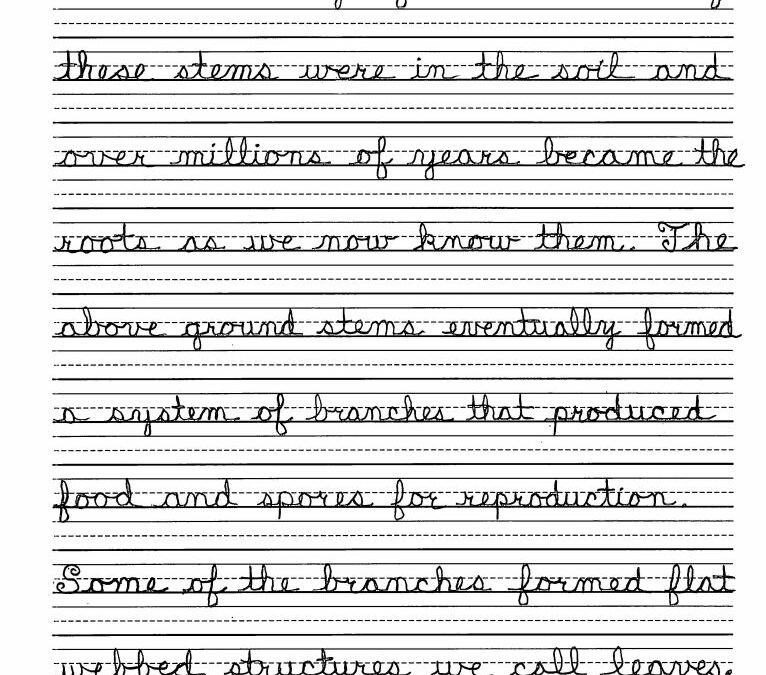 these stems were in the soil and
over millions of years became the
roots as we now know them. The
above ground stems eventually formed
a system of branches that produced
food and spores for reproduction.
Some of the branches formed flat
webbed structures we call leaves.